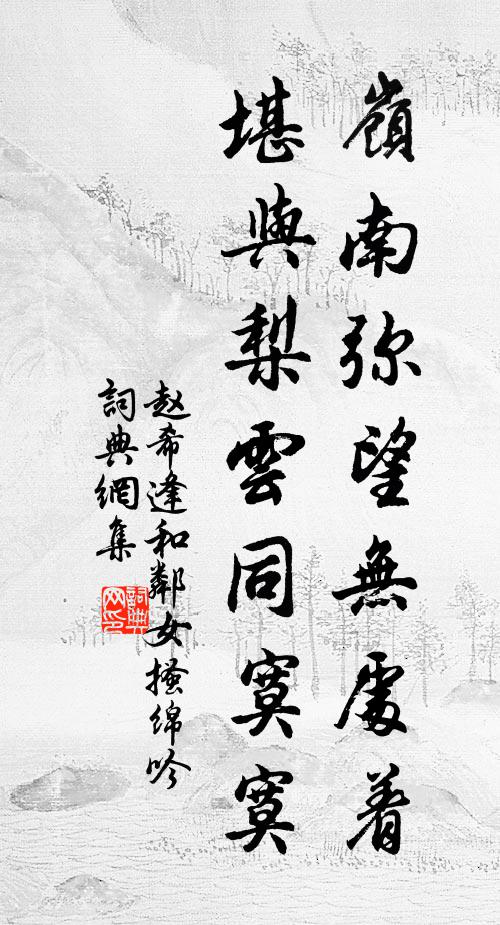 嶺南弥望無處着
堪與梨雲同寞寞
赵希逢和鄰女掻绵吟
詞典網集
詞典网印